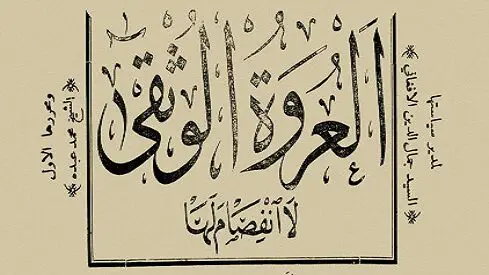 العروة الوثقى
لا انفصام لها
لمدير سياستها
السيد جمال الدين الافغاني
ومحررها الاول
الشيخ محمد عبده